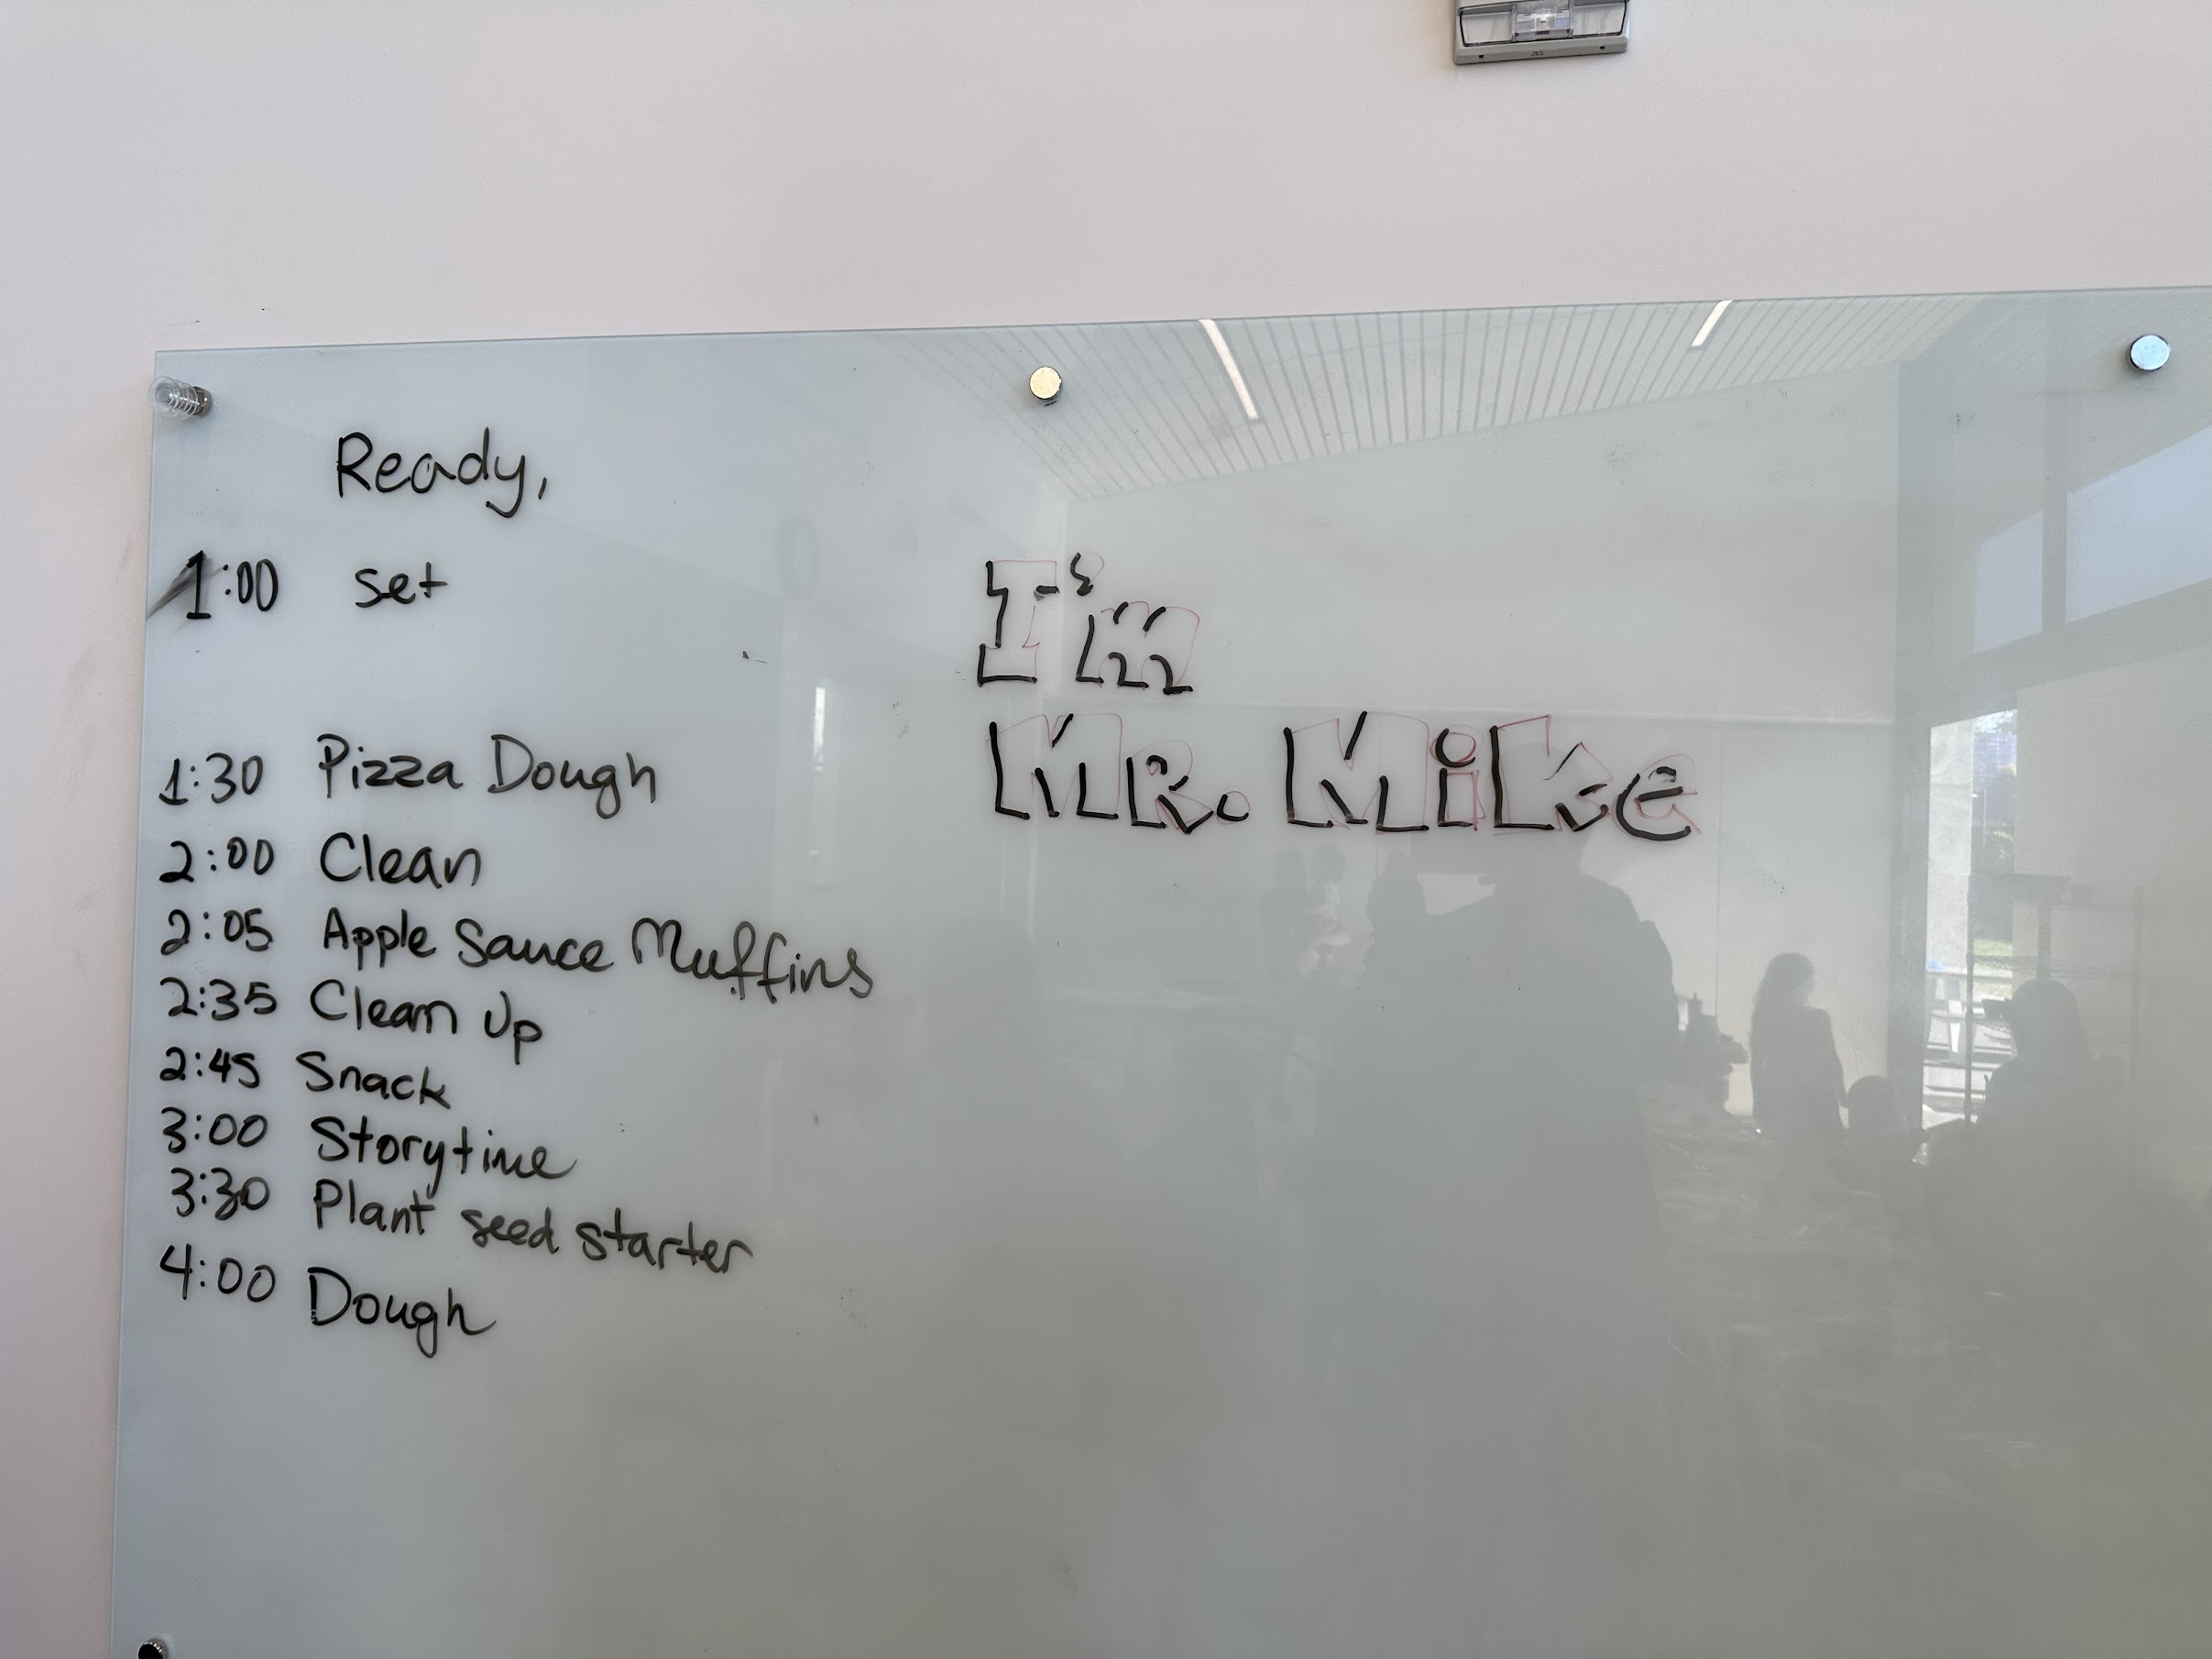 Ready,
1:00 set
1:30 Pizza Dough
2:00 Clean
2:05 Apple Sauce Muffins
2:35 Clean Up
2:45 Snack
3:00 Storytime
3:30 Plant seed starter
4:00 Dough
I'm
MR. Mike